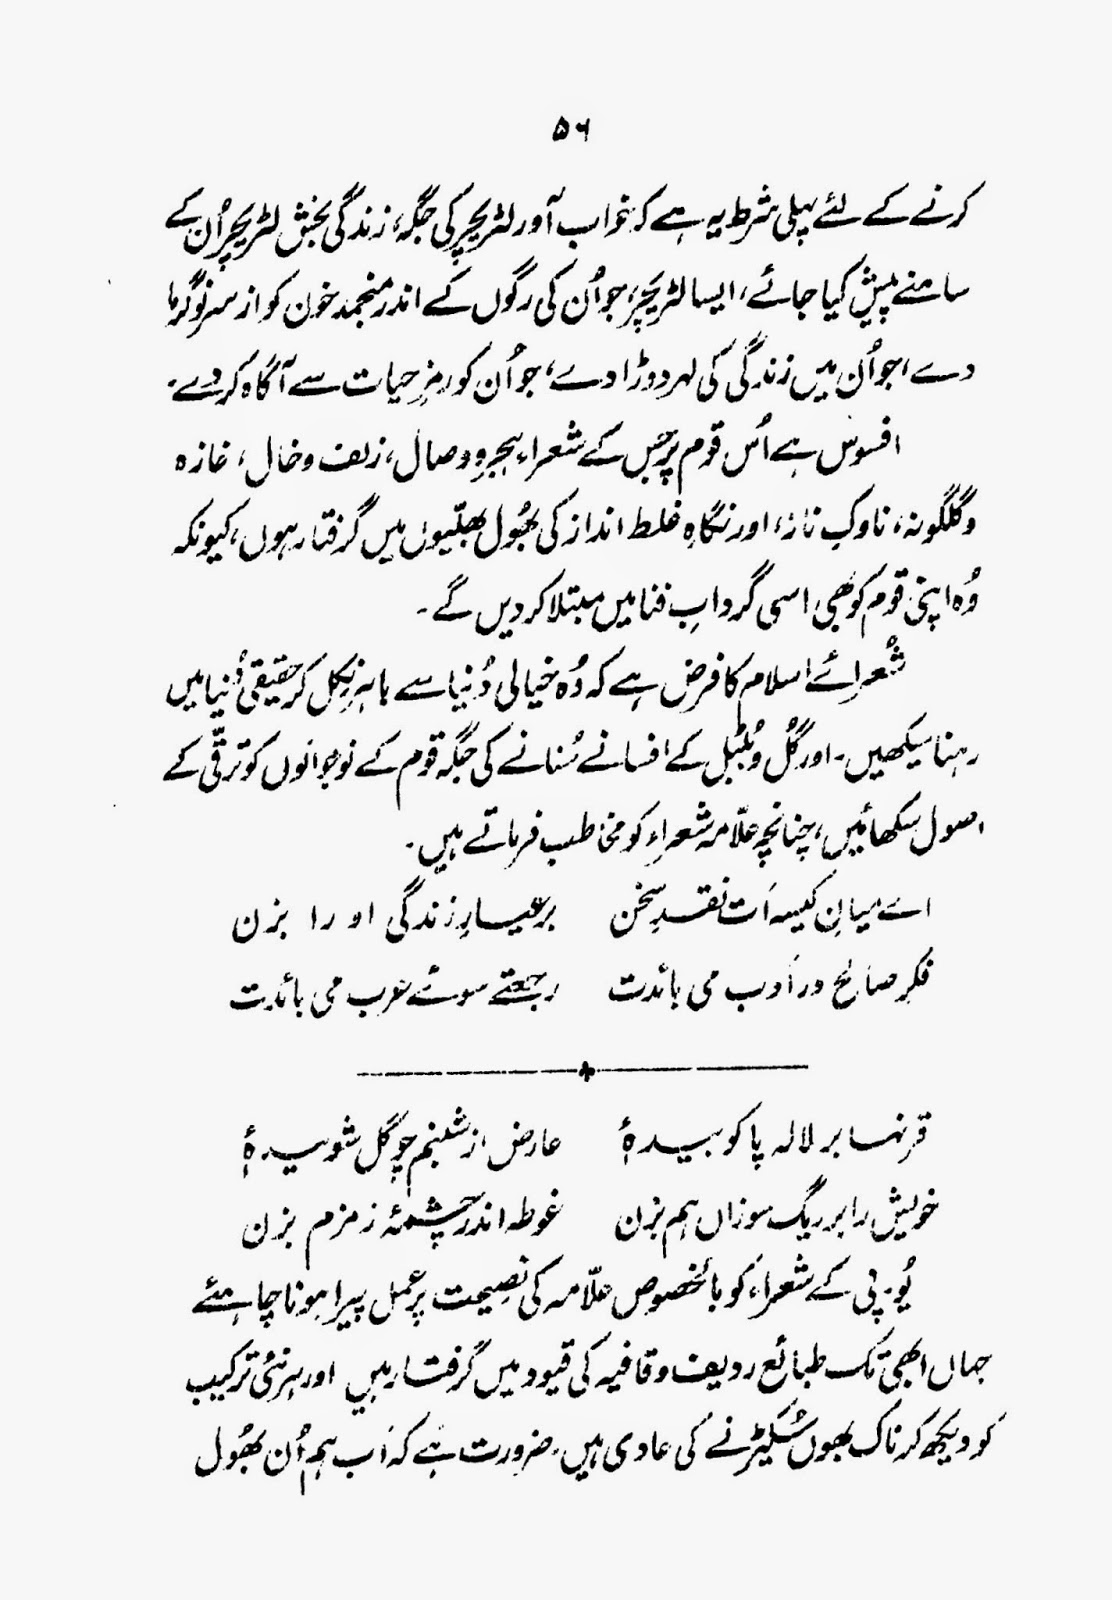 ۵۶
کرنے کے لئے پہلی شرط یہ ہے کہ خواب آور لٹریچر کی جگہ، زندگی بخش لٹریچر اُن کے
سامنے پیش کیا جائے، ایسا لٹریچر، جو اُن کی رگوں کے اندر منجمد خون کو از سرِ نو گرما
دے، جو اُن میں زندگی کی لہر دوڑا دے، جو اُن کو رمزِ حیات سے آگاہ کر دے۔
افسوس ہے اُس قوم پر جس کے شعراء ہجر و وصال، زلف و خال، غازہ
و گلگونہ، ناوکِ ناز، اور نگاہِ غلط انداز کی بھُول بھلیّوں میں گرفتار ہوں، کیونکہ
وُہ اپنی قوم کو بھی اسی گردابِ فنا میں مبتلا کر دیں گے۔
شُعرائے اسلام کا فرض ہے کہ وُہ خیالی دُنیا سے باہر نِکل کر حقیقی دُنیا میں
رہنا سیکھیں۔ اور گُل و بُلبُل کے افسانے سُنانے کی جگہ قوم کے نوجوانوں کو ترقّی کے
اصول سکھائیں، چنانچہ علّامہ شعراء کو مخاطب فرماتے ہیں۔
اے میانِ کیسہ اَت نقدِ سخن برعیارِ زندگی او را بزن
فکرِ صالح در اَدب می بائدت رجعتے سوئے عرب می بائدت
قرنہا بر لالہ پا کوبیدۂ عارض از شبنم چو گل شوئیدۂ
خویش را بر ریگِ سوزاں ہم بزن غوطہ اندر چشمۂ زمزم بزن
یُو۔پی کے شعراء کو بالخصوص علّامہ کی نصیحت پر عمل پیرا ہونا چاہئے
جہاں ابھی تک طبائع ردیف و قافیہ کی قیود میں گرفتار ہیں اور ہر نئی ترکیب
کو دیکھ کر ناک بھوں سُکیڑنے کی عادی ہیں۔ ضرورت ہے کہ اَب ہم اُن بھُول